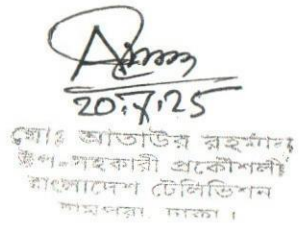 20.X.25
মোঃ আতাউর রহমান
উপ-সহকারী প্রকৌশলী
বাংলাদেশ টেলিভিশন
রামপুরা, ঢাকা।